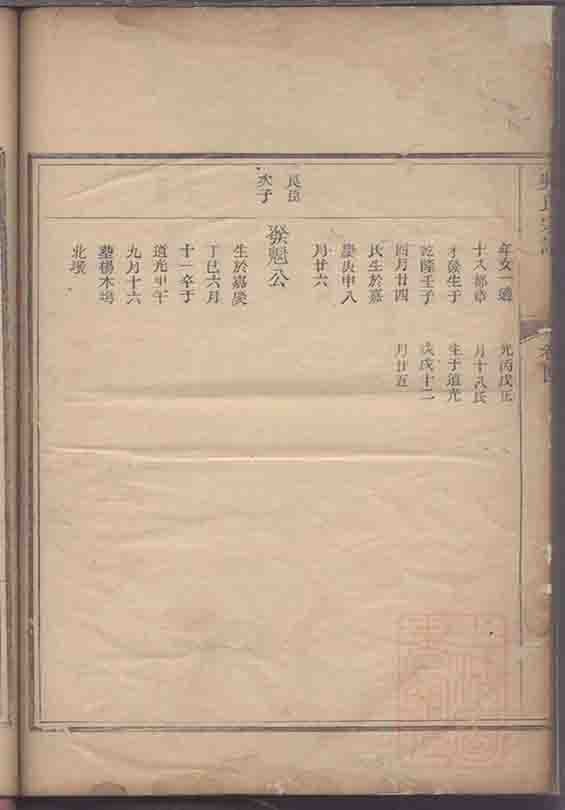 年女一適
十八都章
才發生于
乾隆壬子
四月廿四
氏生於嘉
慶庚申八
月廿六
光丙戌正
月十八氏
生于道光
戊戌十二
月廿五
良臣
次子
魁公
生於嘉慶
丁巳六月
十一卒于
道光甲午
九月十六
塟楊木塢
北墺